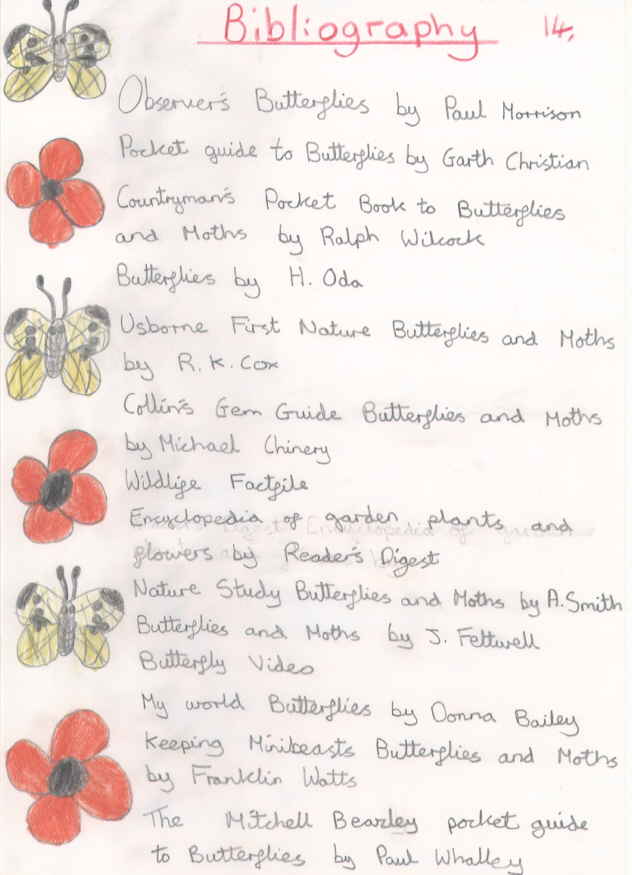 Bibliography 14.
Observer's Butterflies by Paul Morrison
Pocket guide to Butterflies by Garth Christian
Countryman's Pocket Book to Butterflies
and Moths by Ralph Wilcock
Butterflies by H. Oda
Usborne First Nature Butterflies and Moths
by R. K. Cox
Collin's Gem Guide Butterflies and Moths
by Michael Chinery
Wildlife Factfile
Encyclopedia of garden plants and
flowers by Reader's Digest
Nature Study Butterflies and Moths by A. Smith
Butterflies and Moths by J. Feltwell
Butterfly Video
My world Butterflies by Donna Bailey
Keeping Minibeasts Butterflies and Moths
by Franklin Watts
The Mitchell Beazley pocket guide
to Butterflies by Paul Whalley